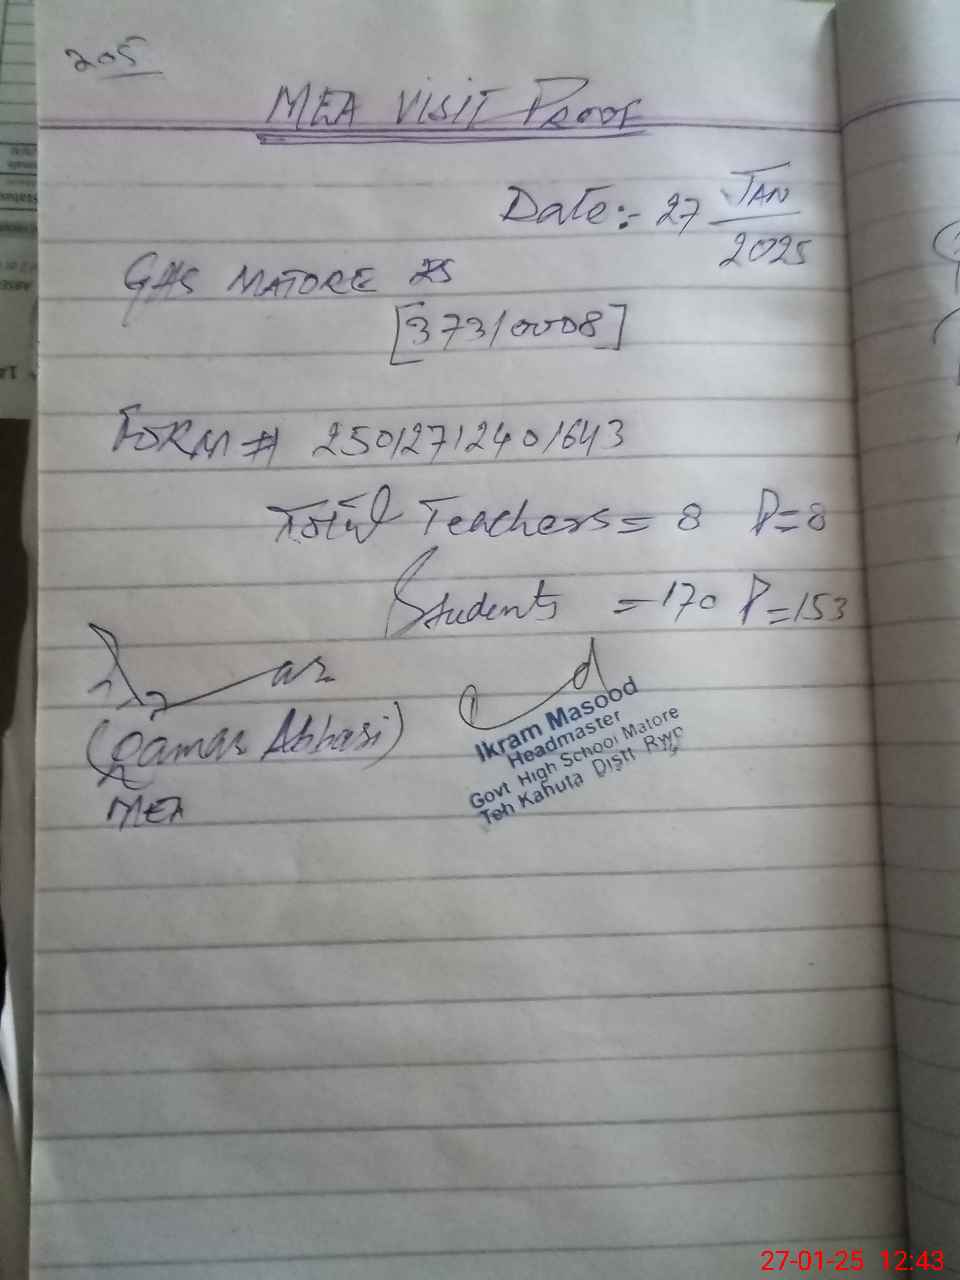 205
MEA VISIT PROOF
Date:- 27 JAN
2025
GHS MATORE
[37310008]
FORM # 25012712401643
Total Teachers = 8 P=8
Students = 170 P=153
(Qamar Abbasi)
MEA
Ikram Masood
Headmaster
Govt High School Matore
Teh Kahuta Distt Rwp
27-01-25 12:43